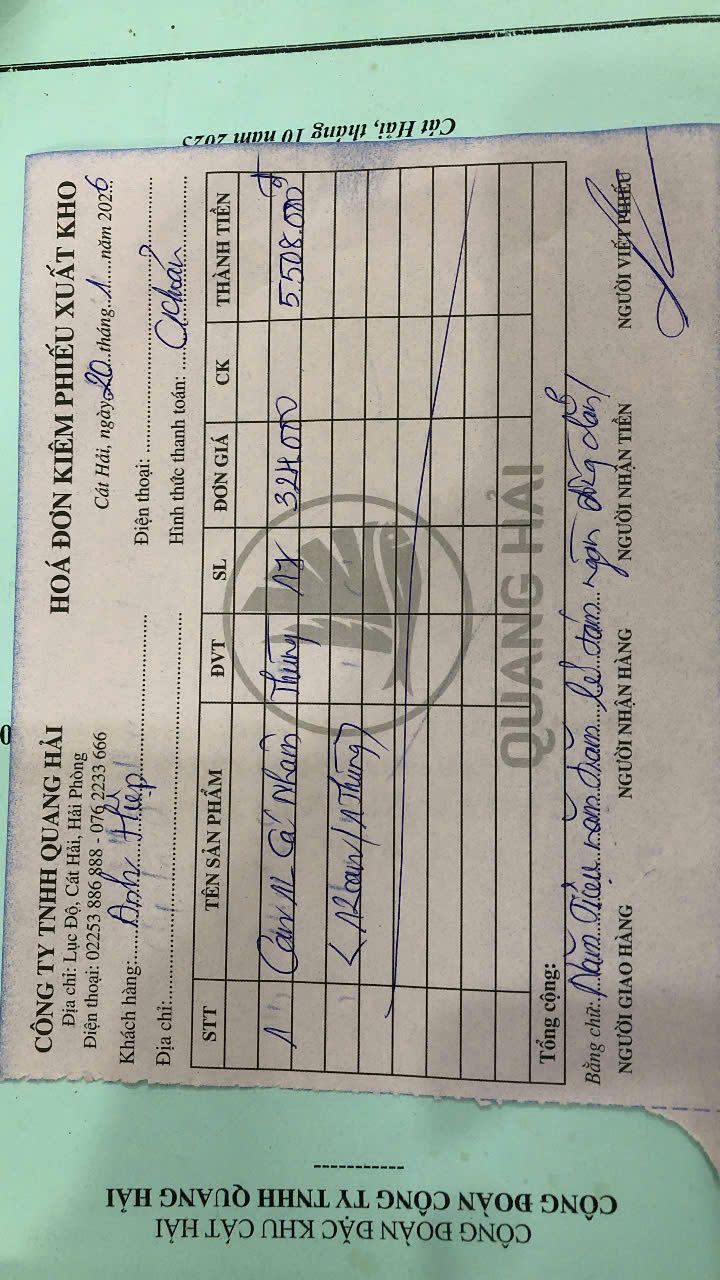 CÔNG TY TNHH QUANG HẢI
Địa chỉ: Lục Độ, Cát Hải, Hải Phòng
Điện thoại: 02253 886 888 - 076 2233 666
HOÁ ĐƠN KIÊM PHIẾU XUẤT KHO
Cát Hải, ngày 20 tháng 1 năm 2026
Khách hàng: Anh Hiệp
Điện thoại:
Địa chỉ:
Hình thức thanh toán:
STT TÊN SẢN PHẨM ĐVT SL ĐƠN GIÁ CK THÀNH TIỀN
1 Can 1L Cá Nhâm Thùng 17 324.000 5.508.000đ
(12 can / 1 Thùng)
QUANG HẢI
Tổng cộng:
Bằng chữ: Năm Triệu năm trăm lẻ tám ngàn đồng chẵn
NGƯỜI GIAO HÀNG NGƯỜI NHẬN HÀNG NGƯỜI NHẬN TIỀN NGƯỜI VIẾT PHIẾU
Cát Hải, tháng 10 năm 2025
CÔNG ĐOÀN ĐẶC KHU CÁT HẢI
CÔNG ĐOÀN CÔNG TY TNHH QUANG HẢI